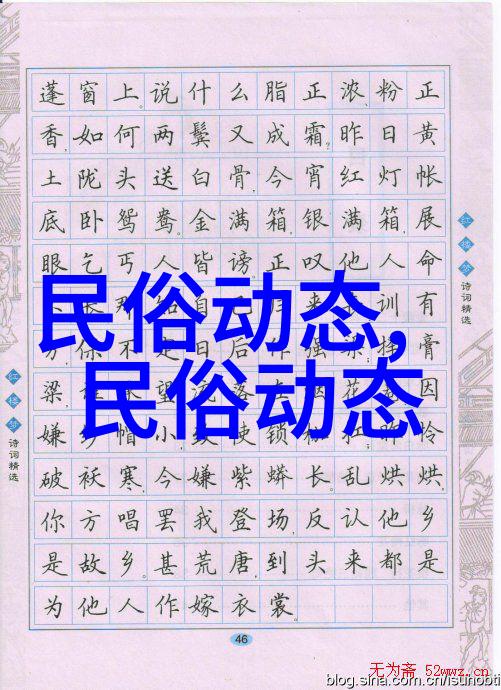 蓬窗上。说什么脂正浓、粉正
香,如何两鬓又成霜?昨日黄
土陇头送白骨,今宵红灯帐
底卧鸳鸯。金满箱,银满箱,展
眼乞丐人皆谤。正叹他人命
长那自来训有
方,保不定日后作强梁。择膏
梁望落花因
嫌纱帽小使锁枷杠,昨怜
破袄寒,今嫌紫蟒长。乱烘烘,
你方唱罢我登场,反认他乡
是故乡。甚荒唐,到头来都是
为他人作嫁衣裳。
民俗动态,
民俗动态
红楼梦诗词精选
红楼梦诗词精选
46
无为斋 52wwz.cn
blog.sina.com.cn/isunobti